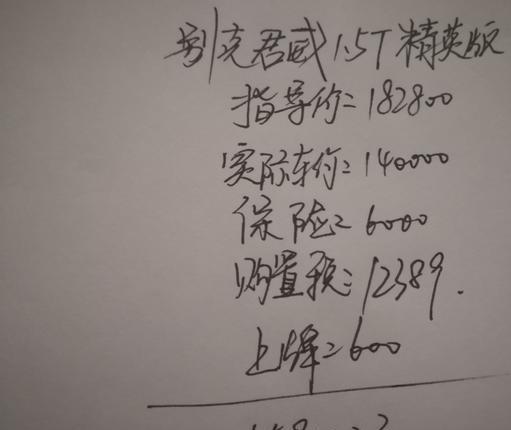 别克君威1.5T精英版
指导价=182800
实际车价=140000
保险=6000
购置税=12389.
上牌=600